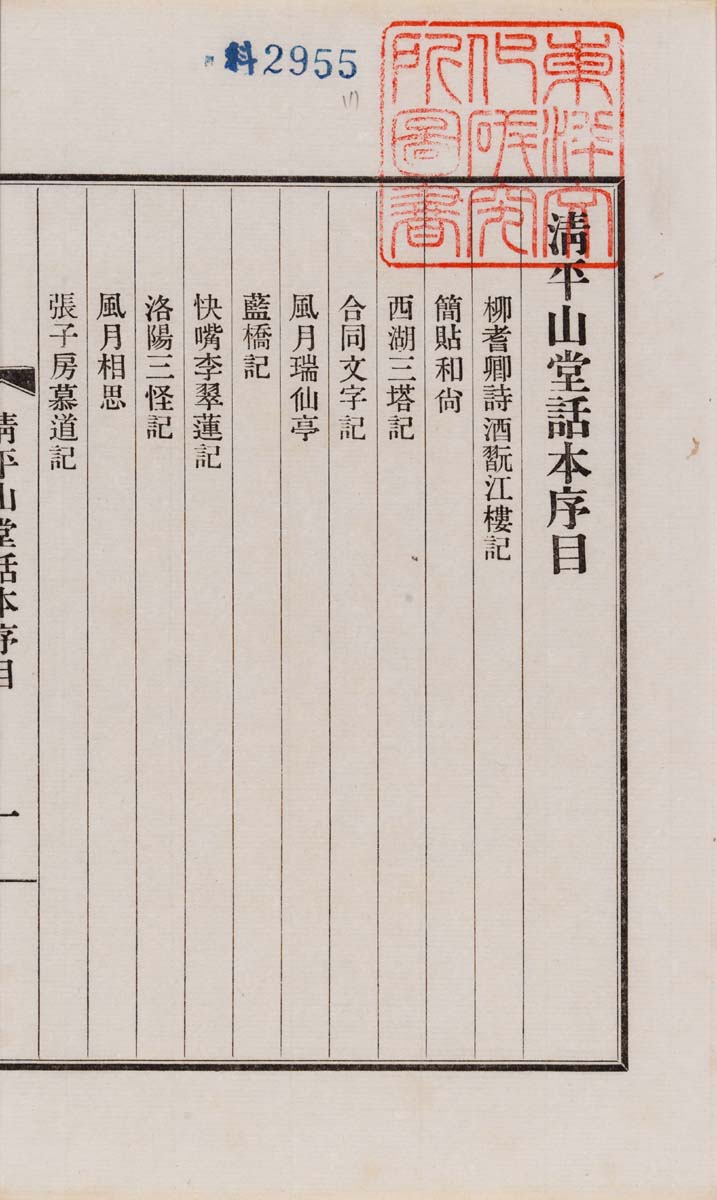 料2955
(1)
東洋文
化研究
所圖書
淸平山堂話本序目
柳耆卿詩酒翫江樓記
簡貼和尙
西湖三塔記
合同文字記
風月瑞仙亭
藍橋記
快嘴李翠蓮記
洛陽三怪記
風月相思
張子房慕道記
淸平山堂話本序目
一